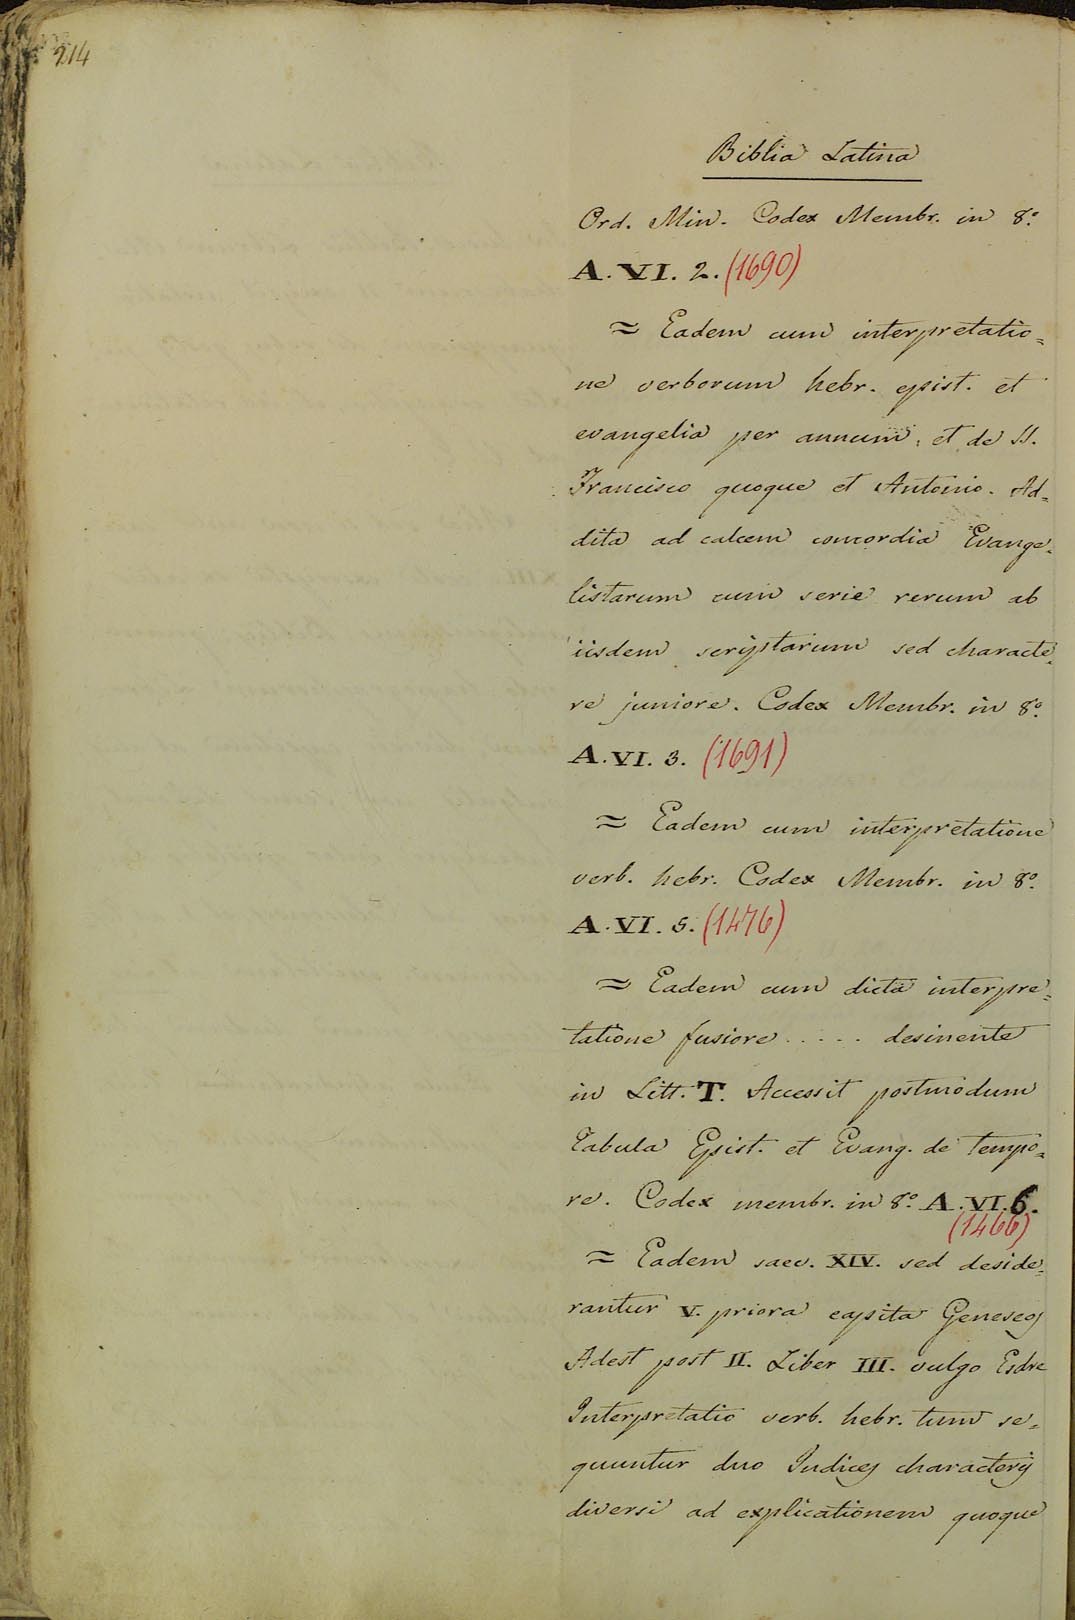 214
Biblia Latina
Ord. Min. Codex Membr. in 8.º
A. VI. 2. (1690)
≈ Eadem cum interpretatio=
ne verborum hebr. epist. et
evangelia per annum, et de SS.
Francisco quoque et Antonio. Ad=
dita ad calcem concordia Evange=
listarum cum serie rerum ab
iisdem scriptarum sed characte=
re juniore. Codex Membr. in 8.º
A. VI. 3. (1691)
≈ Eadem cum interpretatione
verb. hebr. Codex Membr. in 8.º
A. VI. 5. (1476)
≈ Eadem cum dicta interpre=
tatione fusiore ..... desinente
in Litt. T. Accessit postmodum
Tabula Epist. et Evang. de tempo=
re. Codex membr. in 8.º A. VI. 6.
(1466)
≈ Eadem saec. XIV. sed deside=
rantur V. priora capita Geneseos
Adest post II. Liber III. vulgo Esdre
Interpretatio verb. hebr. tum se=
quuntur duo Indices characteris
diversi ad explicationem quoque